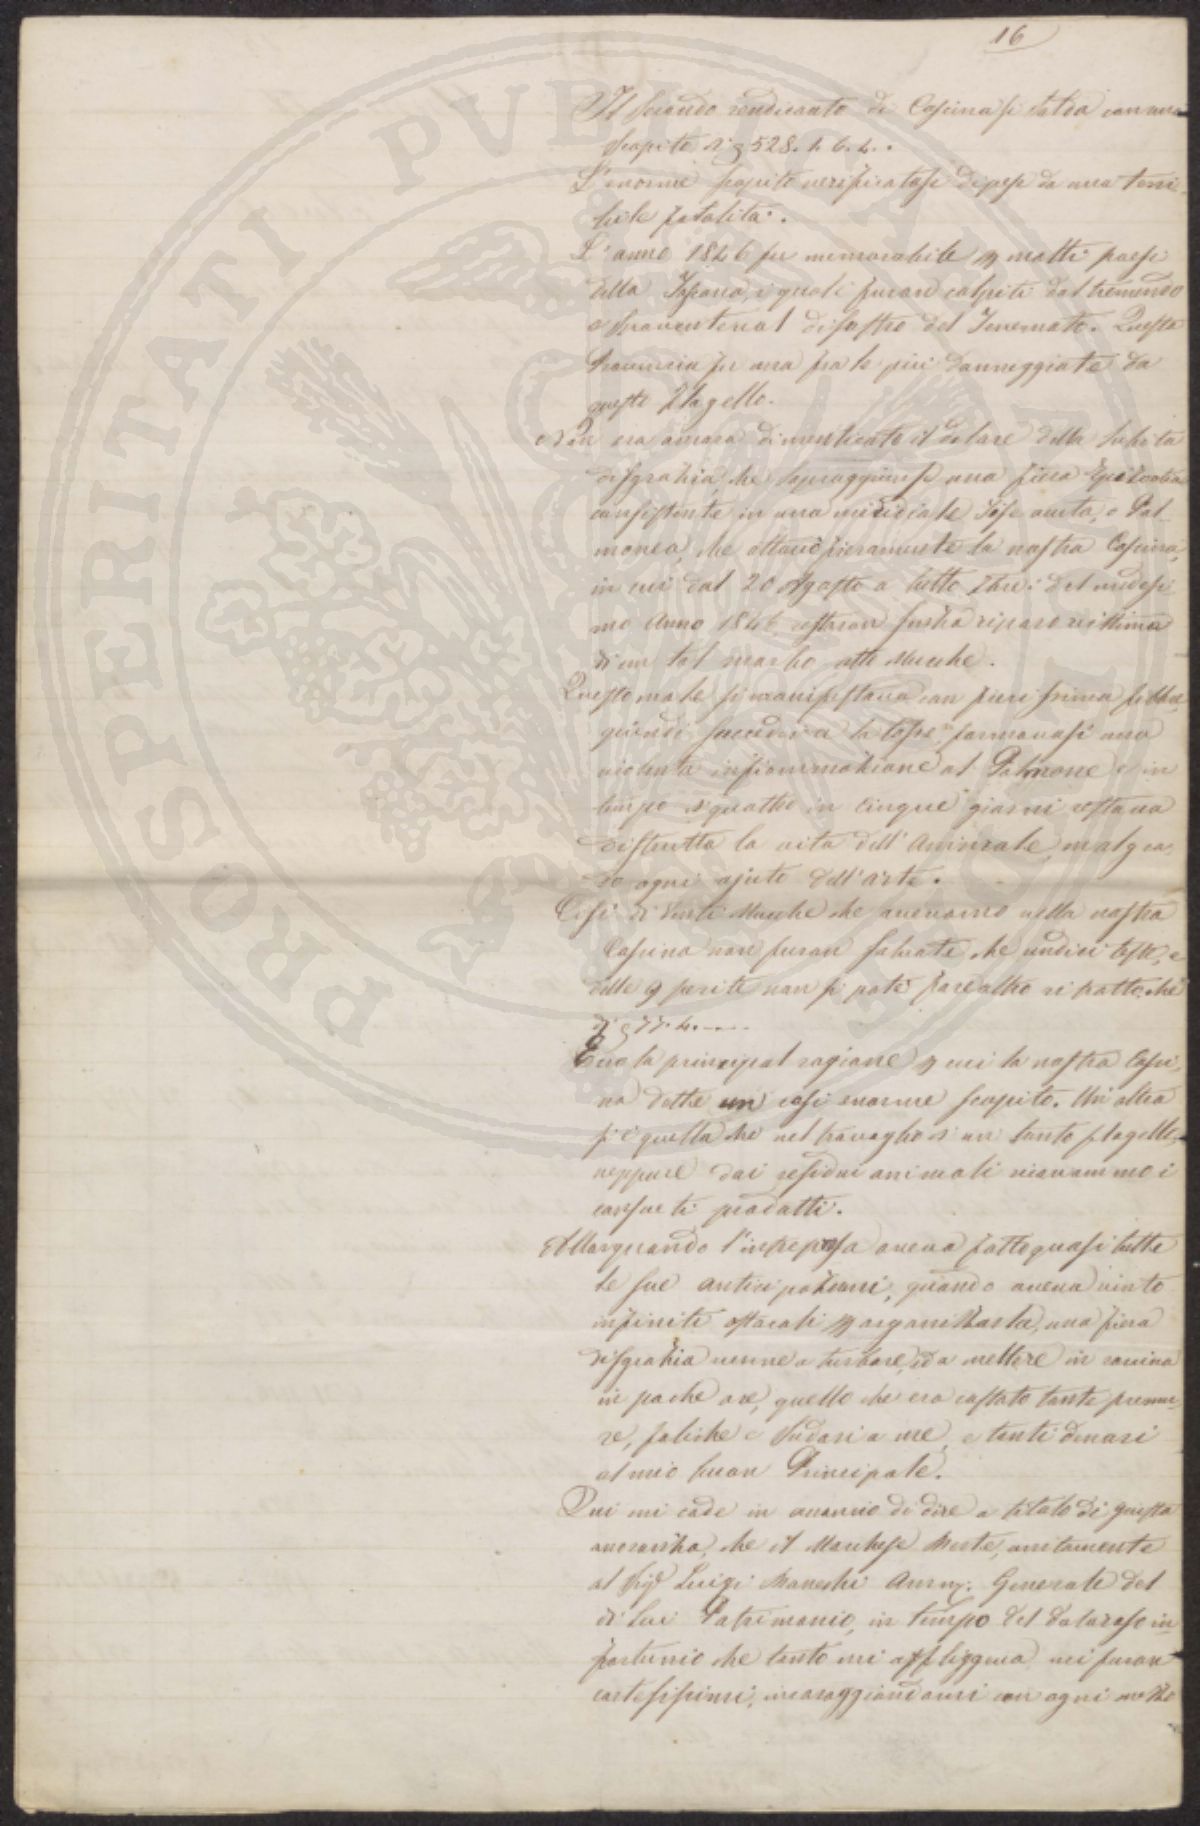 16
Il secondo rendiconto di Cascina si salda con uno
scapito di 528. 1. 6. 4.
L'enorme scapito verificatosi dipese da una terri-
bile fatalità.
L'anno 1846 fu memorabile p molti paesi
della Toscana, i quali furon colpiti dal tremendo
e spaventevol disastro del Terremoto. Questa
Provincia fu una fra le più danneggiate da
questo flagello.
Non era ancora dimenticato il dolore della subita
disgrazia, che sopraggiunse una fiera Epizootia
consistente in una micidiale Tise acuta, o Pol-
monea, che attaccò fieramente la nostra Cascina,
in cui dal 20 Agosto a tutto del medesi-
mo Anno 1846 restaron senza riparo vittima
di un tal morbo otto Mucche.
Questo male si manifestava con fieri prima febbre,
quindi succedeva la tosse, formavasi una
violenta infiammazione al Polmone e in
tempo di quattro in cinque giorni restava
distrutta la vita dell'Animale, malgra-
do ogni ajuto dell'arte.
Così di venti Mucche che avevamo nella nostra
Cascina non furon salvate che undici teste, e
delle 9 perite non si potè fare altro ripatto, che
di 77. 4. ----
Ecco la principal ragione p cui la nostra Casci-
na dette un così enorme scapito. Un'altra
si è quella che nel travaglio di un tanto flagello,
neppure dai residui animali ricavammo i
consueti prodotti.
Allorquando l'intrapresa aveva fatto quasi tutte
le sue anticipazioni, quando aveva vinto
infiniti ostacoli p organizzarla, una fiera
disgrazia venne a turbare, ed a mettere in rovina
in poche ore, quello che era costato tante premu-
re, fatiche e sudori a me, e tanti denari
al mio buon Principale.
Qui mi cade in acconcio di dire a titolo di giusta
onoranza, che il Marchese unitamente
al Sig.r Luigi Amm: Generale del
di Lui Patrimonio, in tempo del doloroso in-
fortunio che tanto mi affliggeva mi furon
cortesissimi, incoraggiandomi con ogni modo